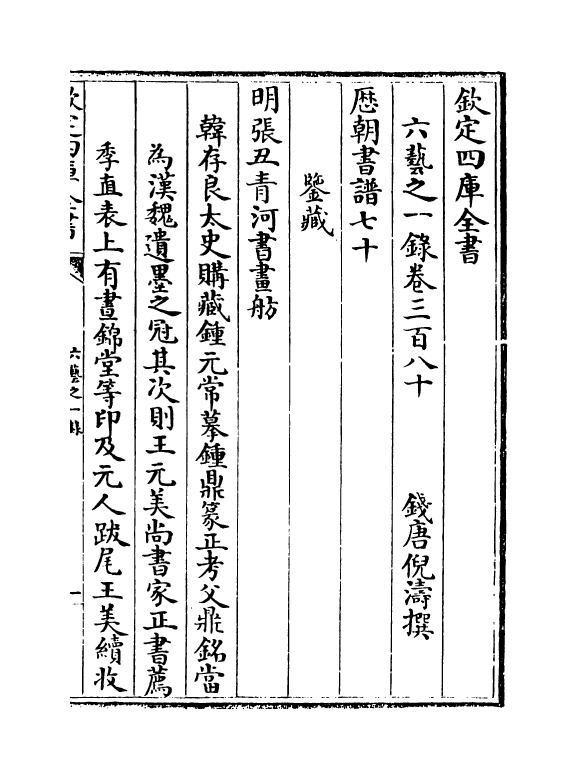 欽定四庫全書
六藝之一錄卷三百八十
錢唐倪濤撰
歷朝書譜七十
鑒藏
明張丑青河書畫舫
韓存良太史購藏鍾元常摹鍾鼎篆正考父鼎銘當
為漢魏遺墨之冠其次則王元美尚書家正書薦
季直表上有晝錦堂等印及元人跋尾王美續收
欽定四庫全書
六藝之一錄
一